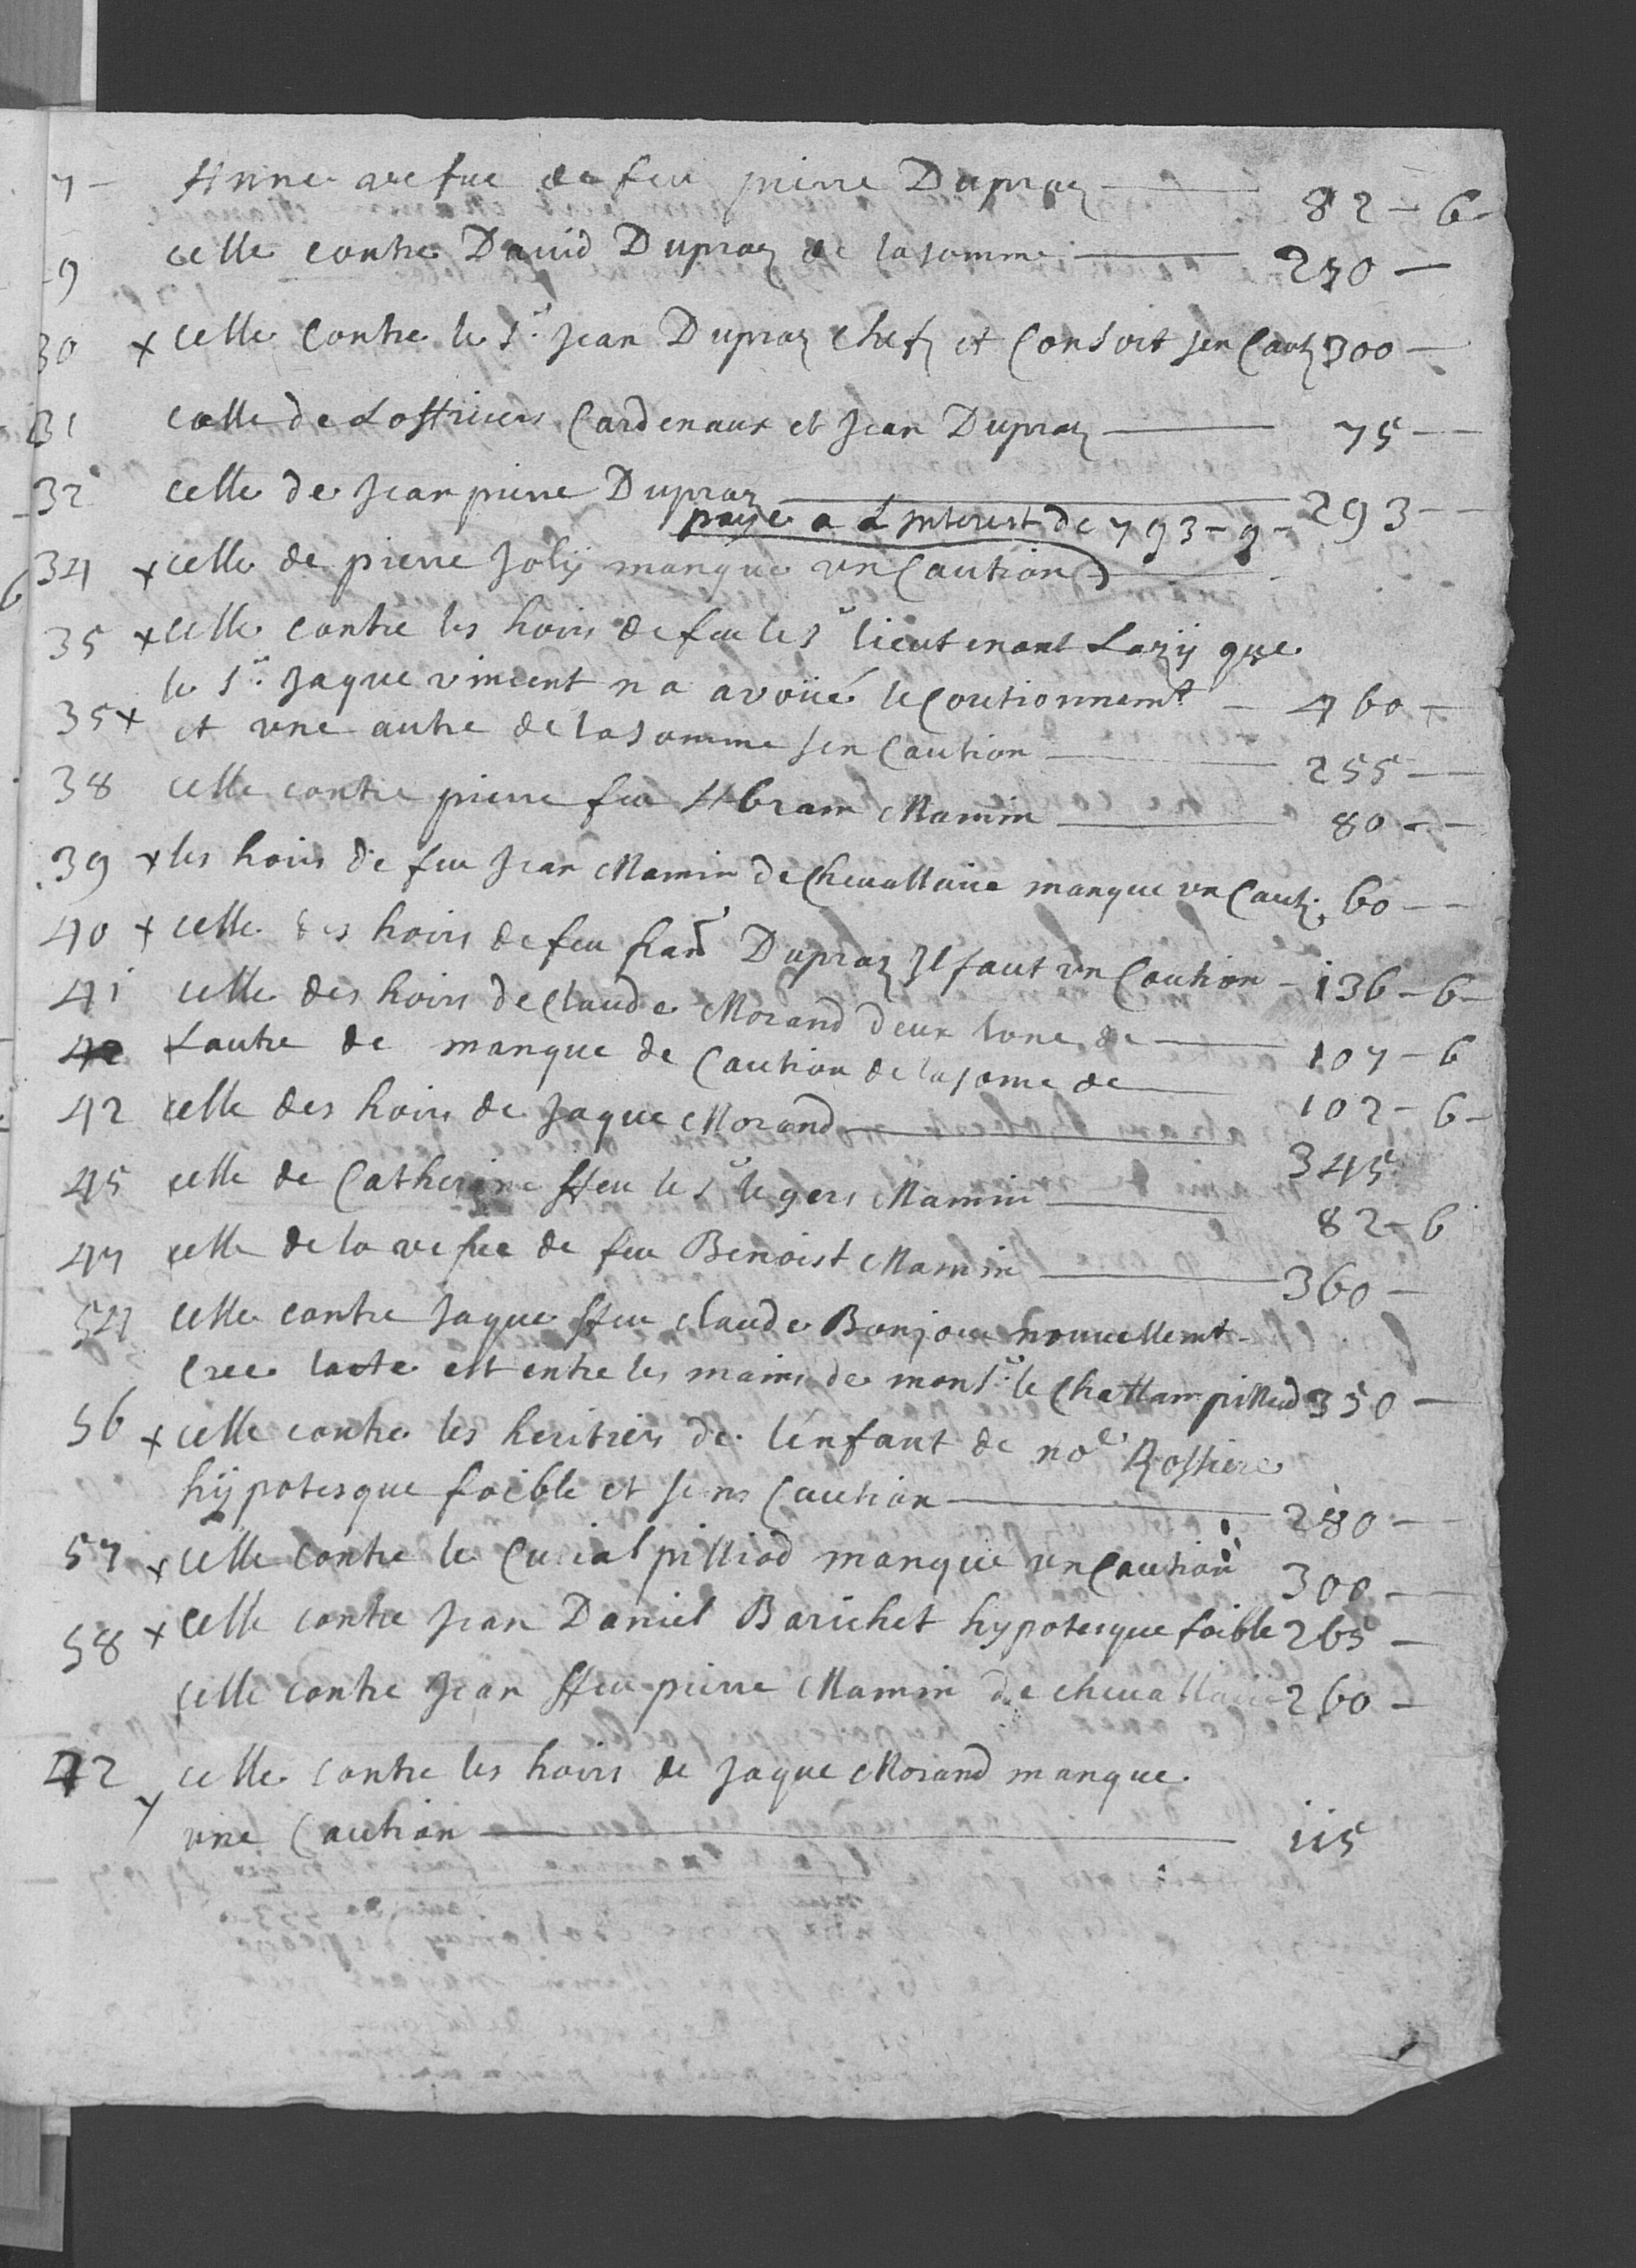 7 — Anne vefue de feu pierre Dupraz — 82 - 6 -
9 celle contre Dauid Dupraz de la somme — 250 —
30 x celle Contre le Sr. Jean Dupraz chef et Consort sen Caut 300 —
31 celle de Lofficiers Cardenaux et Jean Dupraz — 75 —
32 celle de Jean pierre Dupraz — 293 —
paÿe a L'Interest de 793 - 9 -
34 x celle de pierre Jolÿ manque vn Caution
35 x celle contre les hoirs de feu le Sr lieutenant Lazÿ que
le Sr. Jaque vincent n a avoüé le Coutionnemt — 460 —
35 x et vne autre de la Somme sen Caution — 255 —
38 celle contre pierre feu Abram Mamin — 80 —
39 x les hoirs de feu Jean Mamin de Cheuallaire manque vn Caut. 60 —
40 x celle des hoirs de feu frans Dupraz Il faut vn Caution - 136 - 6 -
41 celle des hoirs de Claude Morand deux lune de — 107 - 6
42 Lautre de manque de Caution de la some de — 102 - 6 -
42 celle des hoirs de Jaque Morand — 345
45 celle de Catherine ffeu le Sr legers Mamin — 82 - 6
47 celle de la vefue de feu Benoist Mamin — 360 —
54 celle contre Jaque ffeu Claude Bonjour nouuellemt
Cree lacte est entre les mains de monsr. le Chattam pilliod 350 —
56 x celle contre les heritiers de lénfant de noe. Rossiere
hÿpotesque foible et sens Caution — 280 —
57 x celle contre le Curial pilliod manque vn Caution 300 —
58 x celle contre Jean Daniel Barichet hypotesque foible 265 —
celle contre Jean ffeu pierre Mamin de cheuallaire 260 —
42 x celle contre les hoirs de Jaque Morand manque
vne Caution — 115